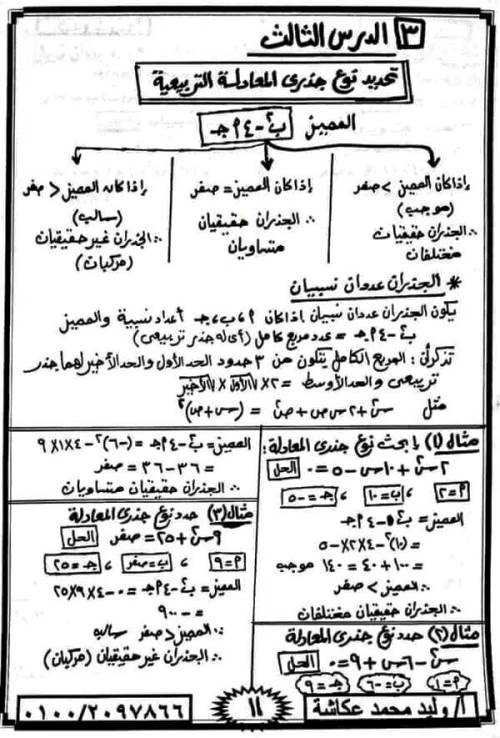 ٣ الدرس الثالث
تحديد نوع جذرى المعادلة التربيعية
المميز ب٢ - ٤ ٢ جـ
إذا كان المميز > صفر
(موجب)
∴ الجذران حقيقيان
مختلفان
إذا كان المميز = صفر
∴ الجذران حقيقيان
متساويان
إذا كان المميز < صفر
(سالب)
∴ الجذران غير حقيقيان
(مركبان)
* الجذران عددان نسبيان
يكون الجذران عددان نسبيان إذا كان ٢ ، ب ، جـ أعداد نسبية والمميز
ب٢ - ٤ ٢ جـ = عدد مربع كامل (أى له جذر تربيعى)
تذكر أن : المربع الكامل يتكون من ٣ حدود الحد الأول والحد الأخير لهما جذر
تربيعى والحد الأوسط = ٢ × √الأول × √الأخير
مثل س٢ + ٢ س ص + ص٢ = (س + ص)٢
مثال (١) إبحث نوع جذرى المعادلة :
٢ س٢ + ١٠ س - ٥ = ٠ الحل
٢ = ٢ ، ب = ١٠ ، جـ = -٥
المميز = ب٢ - ٤ ٢ جـ
= (١٠)٢ - ٤ × ٢ × -٥
= ١٠٠ + ٤٠ = ١٤٠ موجب
∴ المميز > صفر
∴ الجذران حقيقيان مختلفان
مثال (٢) حدد نوع جذرى المعادلة
س٢ - ٦ س + ٩ = ٠ الحل
٢ = ١ ب = -٦ جـ = ٩
المميز = ب٢ - ٤ ٢ جـ = (-٦)٢ - ٤ × ١ × ٩
= ٣٦ - ٣٦ = صفر
∴ الجذران حقيقيان متساويان
مثال (٣) حدد نوع جذرى المعادلة
٩ س٢ + ٢٥ = صفر الحل
٢ = ٩ ، ب = صفر ، جـ = ٢٥
المميز = ب٢ - ٤ ٢ جـ = ٠ - ٤ × ٩ × ٢٥
= -٩٠٠
∴ المميز < صفر سالب
∴ الجذران غير حقيقيان (مركبان)
أ/ وليد محمد عكاشة
١١
٠١٠٠/٢٠٩٧٨٦٦